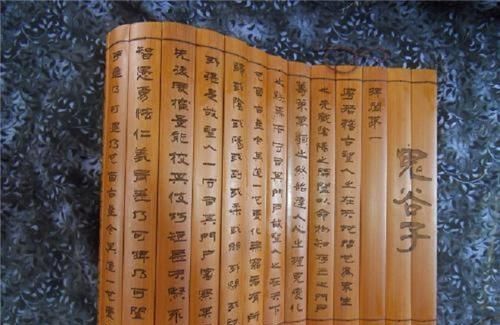 鬼谷子
捭闔第一
粵若稽古聖人之在天地間也為衆生
之先觀陰陽之開闔以命物知存亡之門戶
籌策萬類之終始達人心之理見變化
之朕焉而守司其門戶故聖人之在天下
也自古至今其道一也變化無窮各有所
歸或陰或陽或柔或剛或開或閉或弛
或張是故聖人一守司其門戶審察其
先後度權量能校其伎巧短長
智愚勇怯仁義有差乃可捭乃可闔
乃可 也自古至今其道一也變